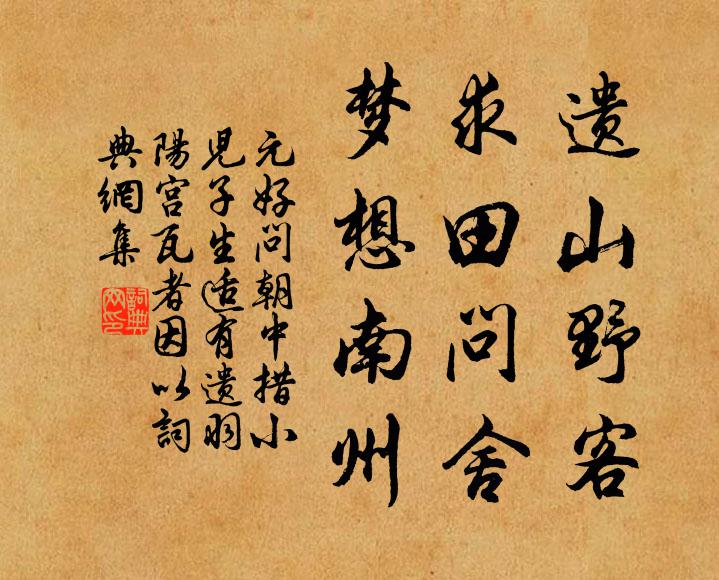 遗山野客
求田问舍
梦想南州
元好问朝中措小
児子生适有遗羽
陽宫瓦者因以詞
典網集
詞典网印